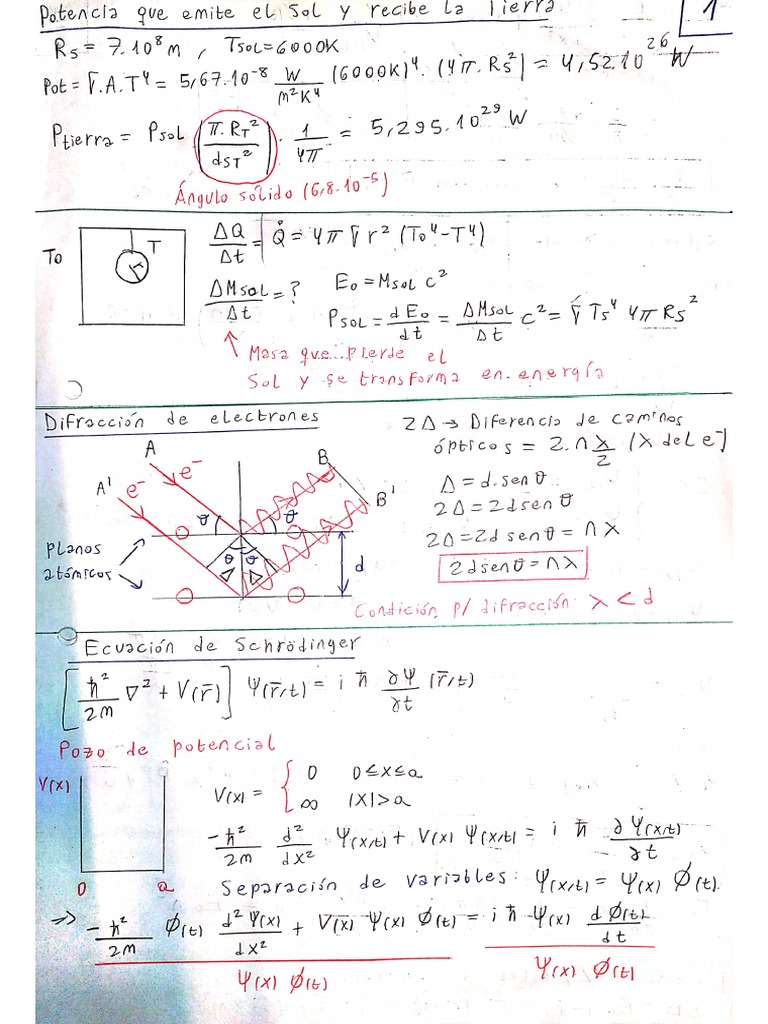 Potencia que emite el Sol y recibe la Tierra
1
Rs = 7.10⁸ m , Tsol = 6000K
Pot = σ.A.T⁴ = 5,67.10⁻⁸ W/m²K⁴ (6000K)⁴. (4π.Rs²) = 4,52.10²⁶ W
Ptierra = Psol (π.R_T²/d_ST²) . 1/4π = 5,295.10²⁹ W
Ángulo sólido (6,8.10⁻⁵)
To
T
r
ΔQ/Δt = Q̇ = 4π σ r² (To⁴-T⁴)
ΔMsol/Δt = ? Eo = Msol c²
Psol = dEo/dt = ΔMsol/Δt c² = σ Ts⁴ 4π Rs²
Masa que pierde el
Sol y se transforma en energía
Difracción de electrones
2Δ → Diferencia de caminos
ópticos = 2.n λ/2 (λ del e⁻)
Δ = d.sen θ
2Δ = 2d sen θ
2Δ = 2d sen θ = n λ
2d sen θ = n λ
Condición p/ difracción: λ < d
A
A'
e⁻
e⁻
B
B'
θ
θ
θ
θ
Δ
Δ
d
Planos
atómicos
Ecuación de Schrödinger
[ħ²/2m ∇² + V(r̄)] Ψ(r̄,t) = i ħ ∂Ψ/∂t (r̄,t)
Pozo de potencial
V(x)
0
a
V(x) = { 0 0≤x≤a
∞ |x|>a
-ħ²/2m d²/dx² Ψ(x,t) + V(x) Ψ(x,t) = i ħ ∂Ψ(x,t)/∂t
Separación de variables: Ψ(x,t) = Ψ(x) Φ(t)
=> -ħ²/2m Φ(t) d²Ψ(x)/dx² + V(x) Ψ(x) Φ(t) = i ħ Ψ(x) dΦ(t)/dt
Ψ(x) Φ(t) Ψ(x) Φ(t)